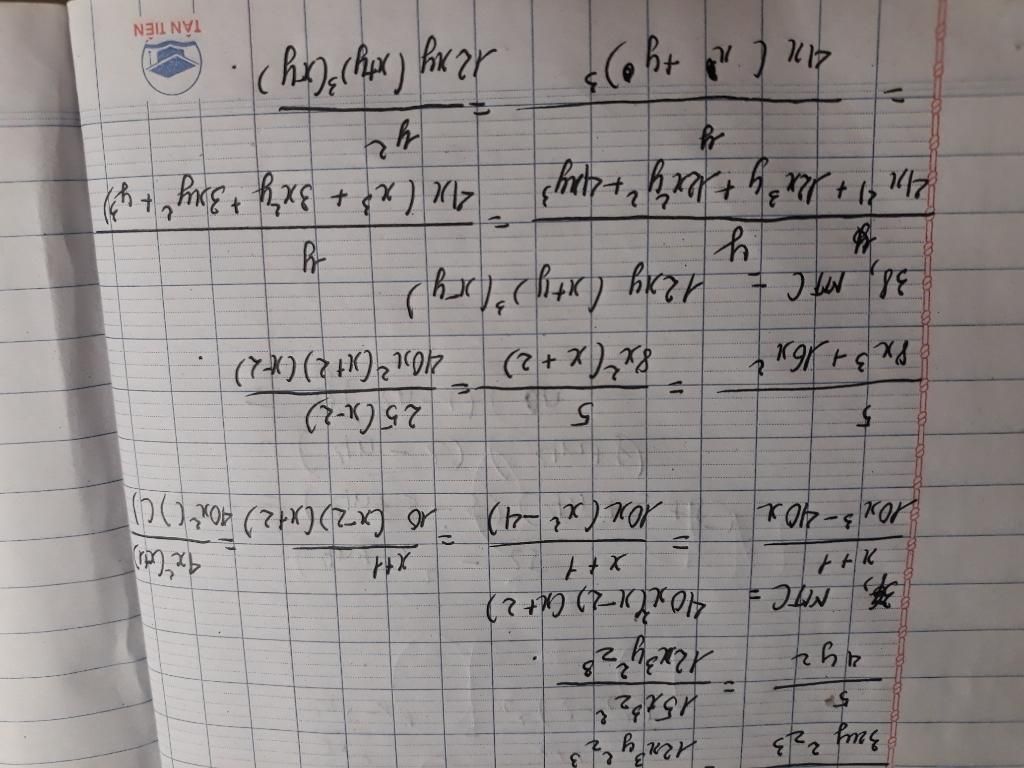 3xy²z³ 12x³y²z³
5/4yz = 15x³z²/12x³y²z³ .
MTC = 40x²(x-2)(x+2)
x+1/10x³-40x = x+1/10x(x²-4) = x+1/10(x-2)(x+2) = 4x(x+1)/40x²( )( )
5/8x³+16x² = 5/8x²(x+2) = 25(x-2)/40x²(x+2)(x-2) .
38, MTC = 12xy(x+y)³(x-y)
y/4x⁴+12x³y+12x²y²+4xy³ = y/4x(x³+3x²y+3xy²+y³)
= y/4x(x+y)³ = y²/12xy(x+y)³(x-y) .
TÂN TIẾN